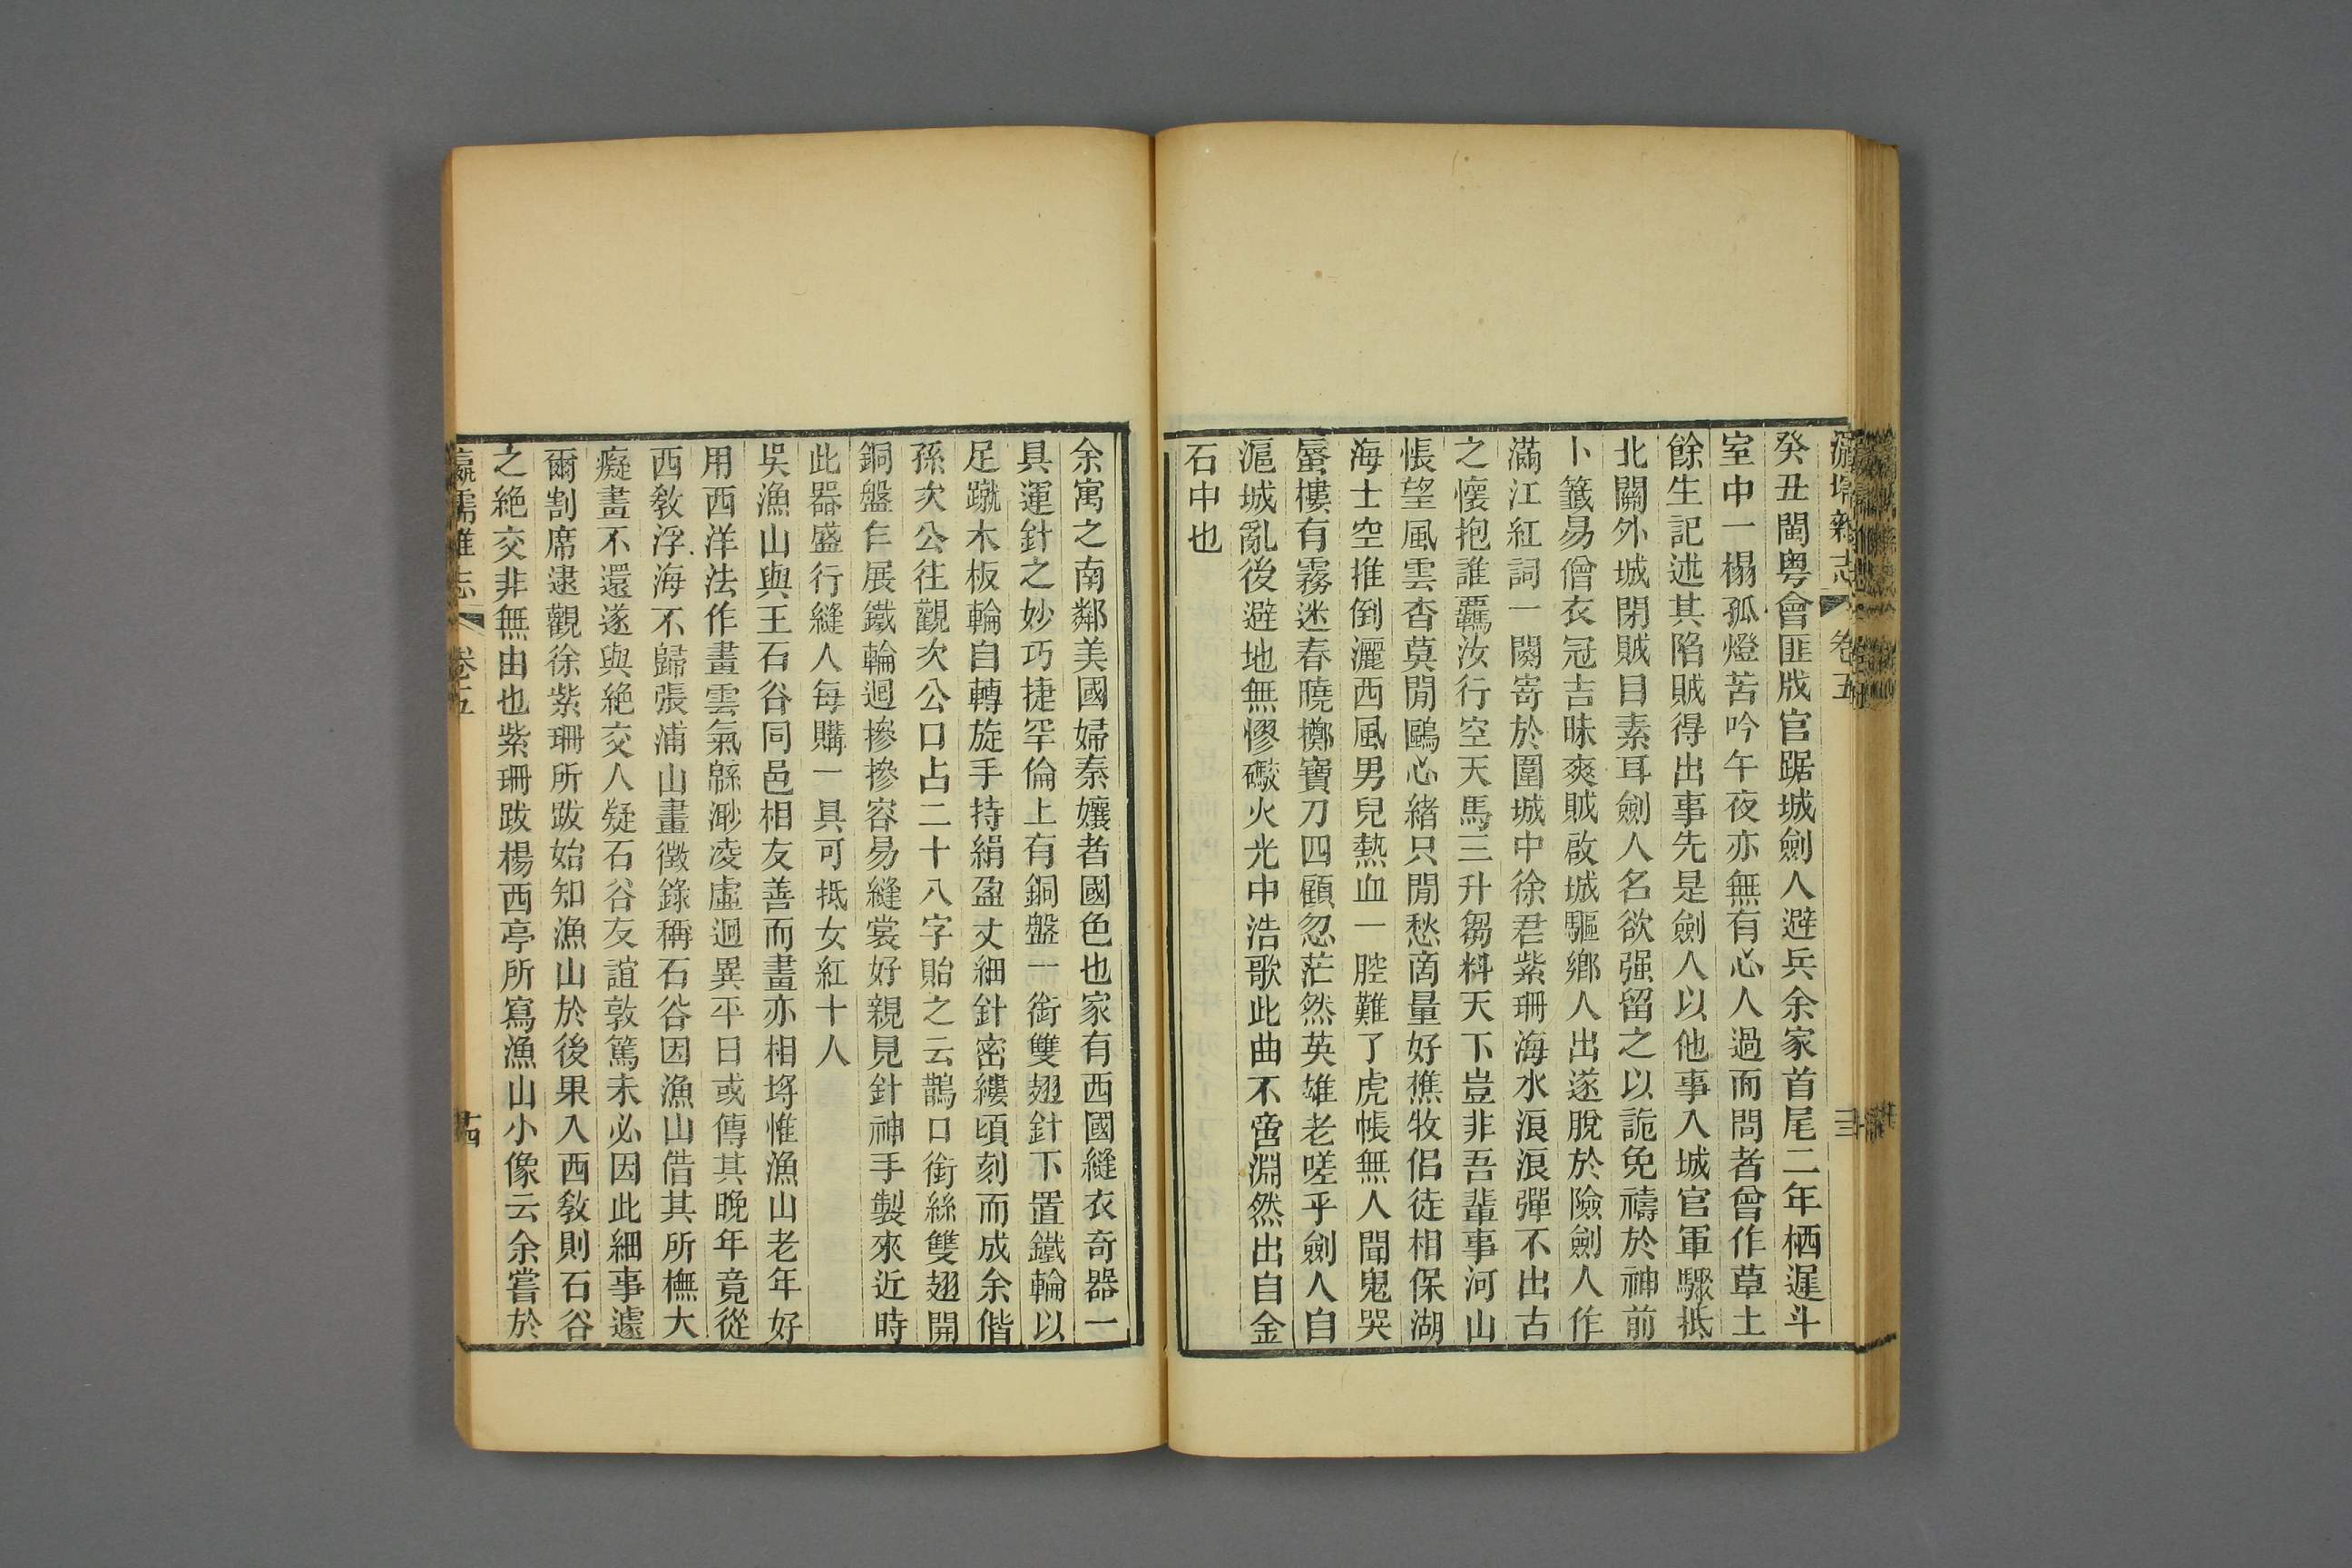 瀛壖雜志 卷五
癸丑閩粤會匪戕官踞城劍人避兵余家首尾二年栖遲斗
室中一榻孤燈苦吟午夜亦無有心人過而問者曾作草土
餘生記述其陷賊得出事先是劍人以他事入城官軍驟抵
北關外城閉賊目素耳劍人名欲强留之以詭免禱於神前
卜籤易僧衣冠吉昧爽賊啟城驅鄉人出遂脫於險劍人作
滿江紅詞一闋寄於圍城中徐君紫珊海水浪浪彈不出古
之懷抱誰羈汝行空天馬三升芻料天下豈非吾輩事河山
悵望風雲杳莫閒鷗心緒只閒愁商量好樵牧侶徒相保湖
海士空推倒灑西風男兒熱血一腔難了虎帳無人聞鬼哭
蜃樓有霧迷春曉擲寶刀四顧忽茫然英雄老嗟乎劍人自
滬城亂後避地無憀礮火光中浩歌此曲不啻淵然出自金
石中也
余寓之南鄰美國婦秦孃者國色也家有西國縫衣奇器一
具運針之妙巧捷罕倫上有銅盤一銜雙翅針下置鐵輪以
足蹴木板輪自轉旋手持絹盈丈細針密縷頃刻而成余偕
孫次公往觀次公口占二十八字貽之云鵲口銜絲雙翅開
銅盤乍展鐵輪迴摻摻容易縫裳好親見針神手製來近時
此器盛行縫人每購一具可抵女紅十人
吳漁山與王石谷同邑相友善而畫亦相埒惟漁山老年好
用西洋法作畫雲氣緜渺凌虛迥異平日或傳其晚年竟從
西敎浮海不歸張浦山畫徵錄稱石谷因漁山借其所橅大
癡畫不還遂與絕交人疑石谷友誼敦篤未必因此細事遽
爾割席逮觀徐紫珊所跋始知漁山於後果入西敎則石谷
之絕交非無由也紫珊跋楊西亭所寫漁山小像云余嘗於
瀛壖雜志 卷五